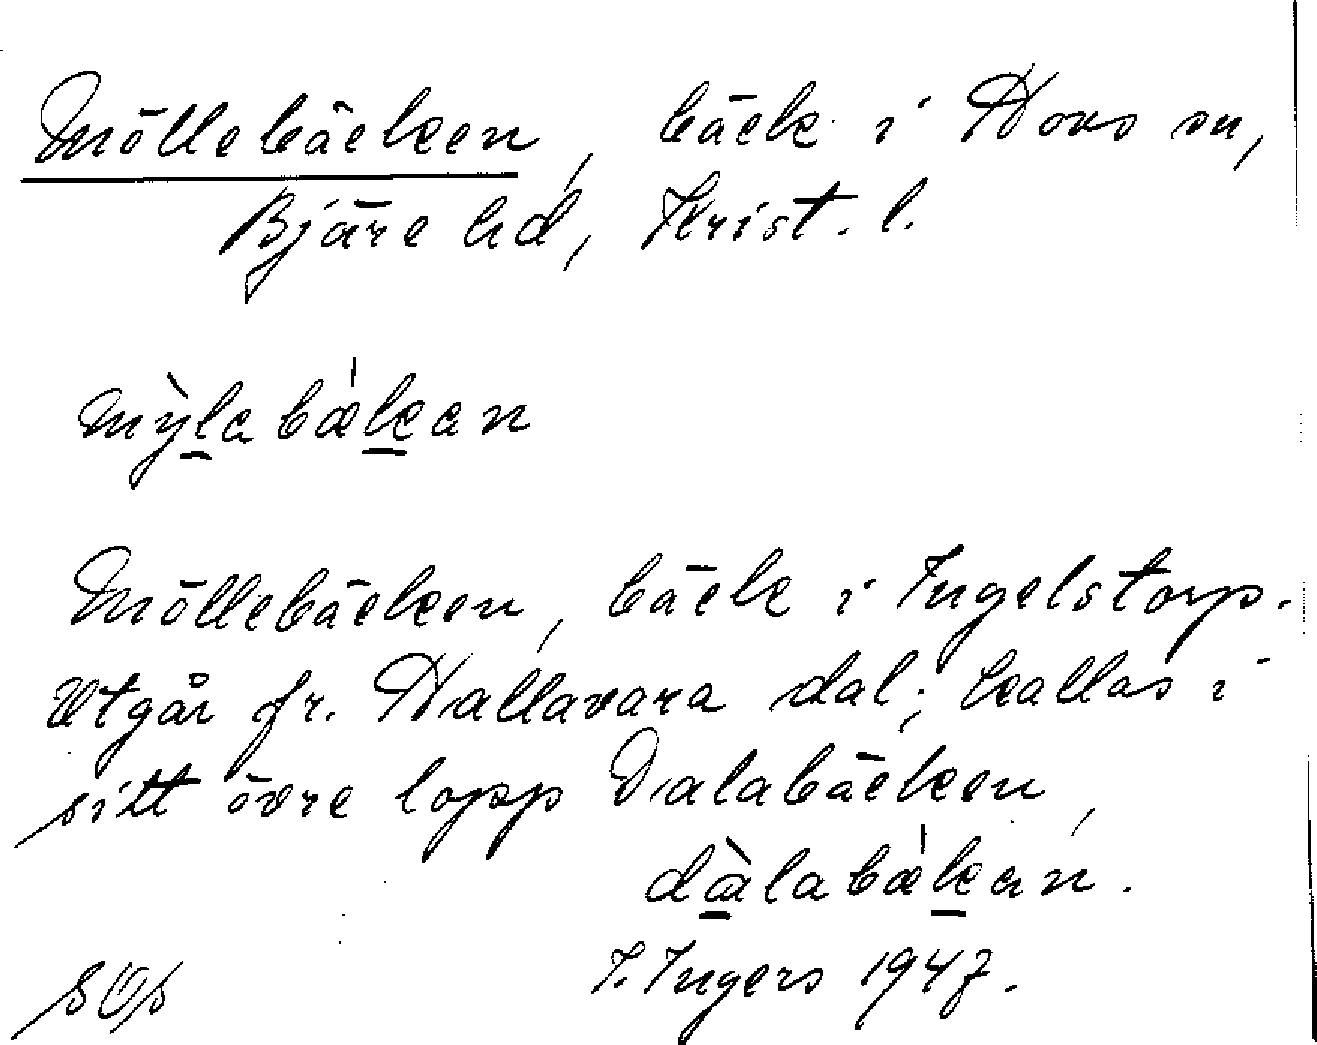 Möllebäcken, bäck i Hovs sn,
Bjäre hd, Krist. l.
mỳla bækan
Möllebäcken, bäck i Ingelstorp.
Utgår fr. Hallavara dal; kallas i
sitt övre lopp Dalabäcken,
dàlabækan.
I. Ingers 1947.